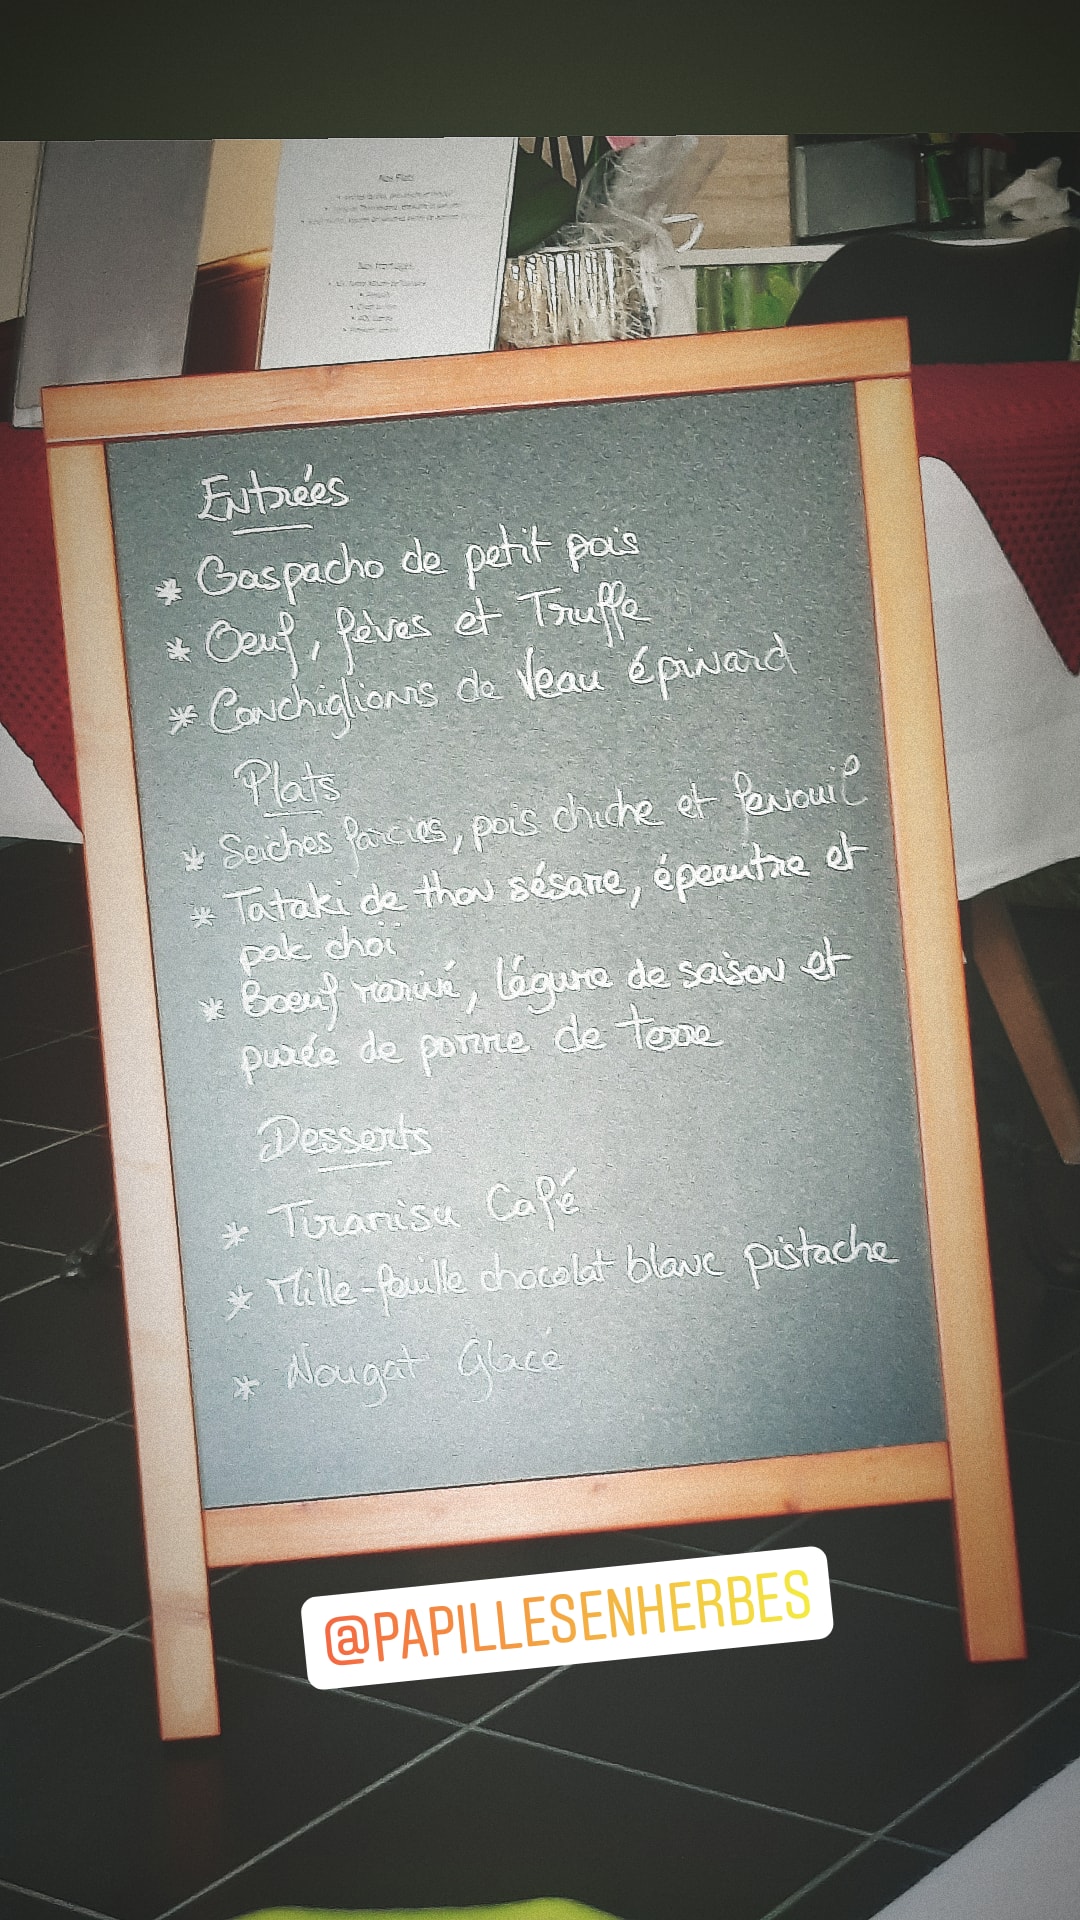 Nos Plats
Entrées
* Gaspacho de petit pois
* Oeuf, fèves et Truffe
* Conchiglionis de Veau épinard
Plats
* Seiches farcies, pois chiche et fenouil
* Tataki de thon sésame, épeautre et
pak choï
* Boeuf mariné, légume de saison et
purée de pomme de terre
Desserts
* Tiramisu Café
* Mille-feuille chocolat blanc pistache
* Nougat Glacé
@PAPILLESENHERBES